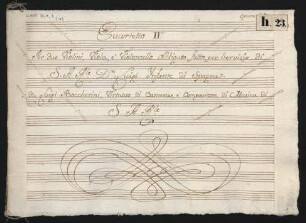 h. 23.
Quartetto II°
A due Violini Viola, e Violoncello Obligato fatto per Servizio di
S. A. R. D. Luigi Infante di Spagna
Da Luigi Boccherini, Virtuoso di Camera e Compositore di Musica di
S. A. R.